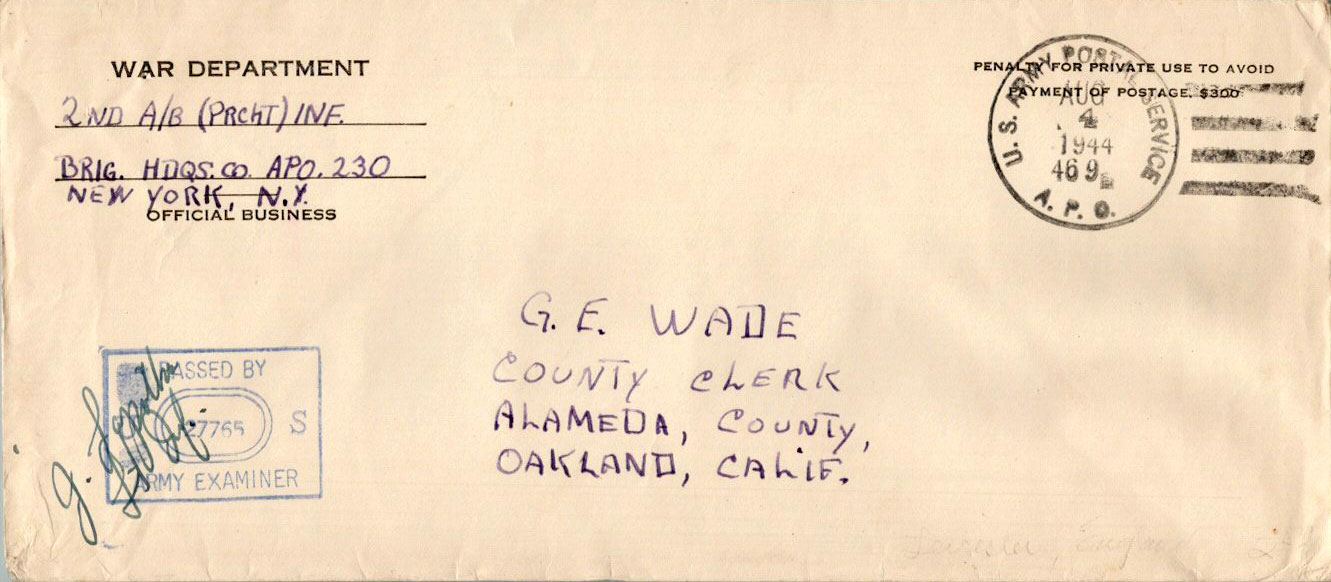 WAR DEPARTMENT
2ND A/B (PRCHT) INF.
BRIG. HDQS. CO. APO. 230
NEW YORK, N.Y.
OFFICIAL BUSINESS
PENALTY FOR PRIVATE USE TO AVOID
PAYMENT OF POSTAGE, $300
U.S. ARMY POSTAL SERVICE
AUG
4
1944
469
A. P. O.
G. E. WADE
COUNTY CLERK
ALAMEDA, COUNTY,
OAKLAND, CALIF.
PASSED BY
27765 S
ARMY EXAMINER
J.